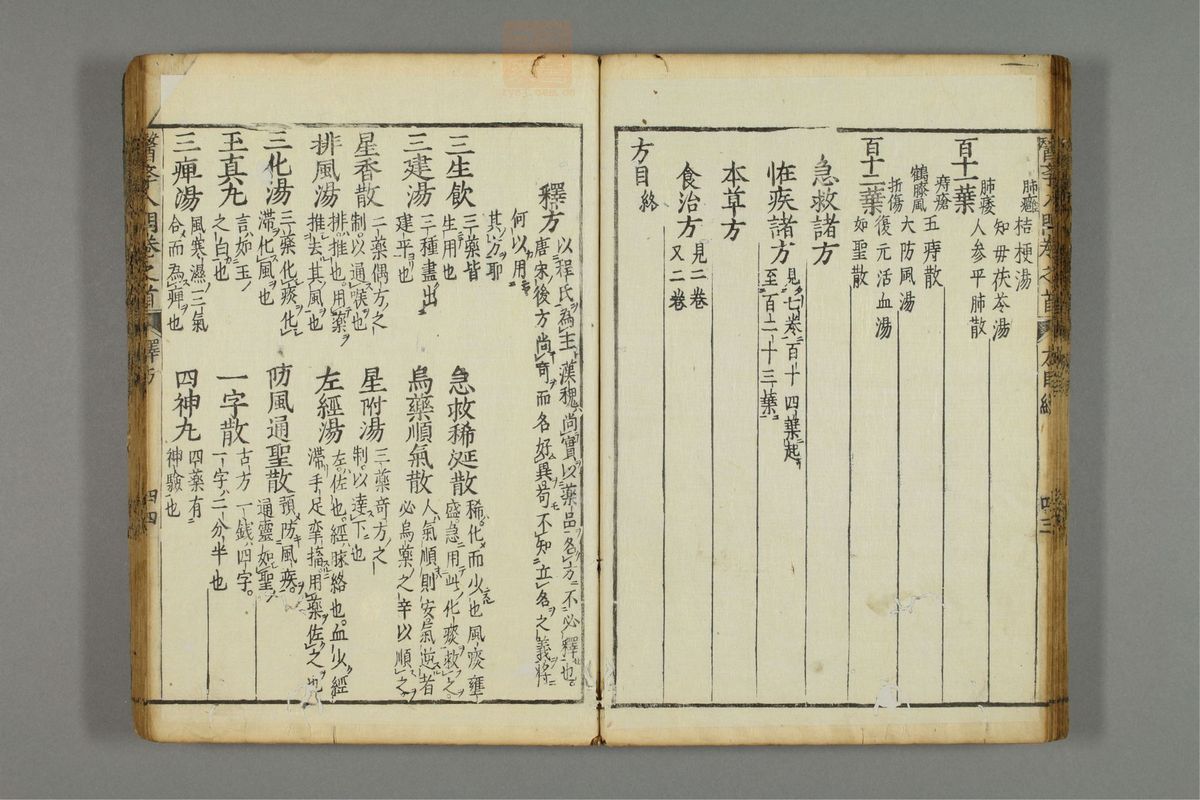 肺癰 桔梗湯
知母茯苓湯
百十一葉 肺痿 人參平肺散
痔瘡 五痔散
鶴膝風 大防風湯
折傷 復元活血湯
百十二葉 如聖散
急救諸方
恠疾諸方 見七卷百十四葉起
至百二十三葉
本草方
食治方 見二卷
又二卷
方目終
釋方 以程氏為主漢魏尚實以藥品名方不必釋也
唐宋後方尚奇而名好異苟不知立名之義將
何以用
其方耶
三生飲 三藥皆
生用也
急救稀涎散 稀化而少也風痰壅
盛急用此化痰救之
三建湯 三種盡出
建平也
烏藥順氣散 人氣順則安氣逆者
必烏藥之辛以順之
星香散 二藥偶方之
制以通喉也
星附湯 三藥奇方之
制以達下也
排風湯 排推也用藥
推去其風也
左經湯 左佐也經脉絡也血少經
滯手足拳攣用藥佐之也
三化湯 三藥化痰化
滯化風也
防風通聖散 預防風疾
通靈如聖
玉真丸 言如玉
之白也
一字散 古方一錢四字
一字二分半也
三痺湯 風寒濕三氣
合而為痺也
四神丸 四藥有
神驗也
醫學入門卷之首 釋方 四四